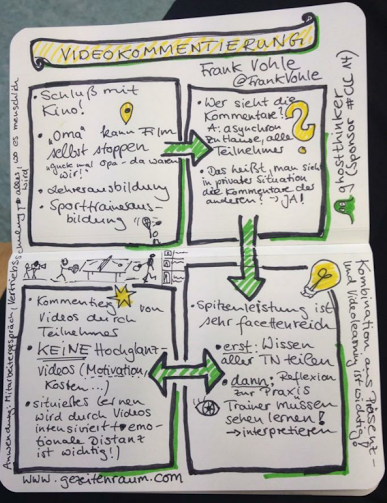 VIDEOKOMMENTIERUNG
Frank Vohle
@FrankVohle
• Schluß mit
Kino!
• "Oma" kann Film
selbst stoppen
"guck mal Opa - da waren
wir!"
• Lehrerausbildung
• Sporttrainerausbildung
• Wer sieht die
Kommentare?
A: asynchron
zuhause, alle
Teilnehmer
• Das heißt, man sieht
in privater Situation
die Kommentare des
anderen? → JA!
ghostthinker
(Sponsor #CLC14)
• Kommentieren von
Videos durch
Teilnehmer
• KEINE Hochglanz-
Videos (Motivation,
Kosten...)
• situiertes Lernen
wird durch Videos
intensiviert (→ emo-
tionale Distanz
ist wichtig!)
• Spitzenleistung ist
sehr facettenreich
• erst: Wissen
aller TN teilen
• dann: Reflexion
zur Praxis
Trainer müssen
sehen lernen!
→ interpretieren
Kombination aus Präsenz-
und Videolearning ist wichtig!
Anwendung: Mitarbeitergespräch, Vertriebsschulung, → alles, wo es menschlich
wird
www.gezeitenraum.com